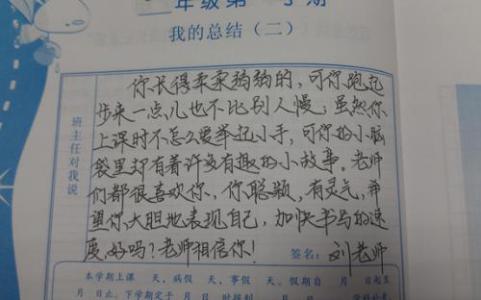 年级第 学期
我的总结（二）
班主任对我说
你长得柔柔弱弱的，可你跑起
步来一点儿也不比别人慢；虽然你
上课时不怎么爱举起小手，可你的小脑
袋里却有着许多有趣的小故事。老师
们都很喜欢你，你聪颖，有灵气，希
望你大胆地表现自己，加快书写的速
度，好吗？老师相信你！
签名：刘老师
本学期上课 天、病假 天、事假 天、假期自 月 日起至
月 日止，下学期定于 月 日